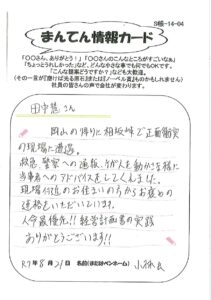 S帳-14-04
まんてん情報カード
「〇〇さん、ありがとう!」「〇〇さんのこんなところがすごいなぁ」
「ちょっとうれしかった」など、どんな小さな事でも何でもOKです。
「こんな提案どうですか?」なども大歓迎。
その一言が「磨けば光る原石」となります(または「ノーベル賞」ものかもしれません)
社員の皆さんの声で会社が変わります。
田中 さん
岡山の帰りに相坂峠で正面衝突
の現場に遭遇。
救急、警察への通報、けが人を動かさな様に
当事者へのアドバイスをしてくれました。
現場付近のお住まいの方からお褒めの
連絡をいただいています。
人命最優先!!経営計画書の実践
ありがとうございます!!
R7年 8月 21日 名前(またはペンネーム) 小林